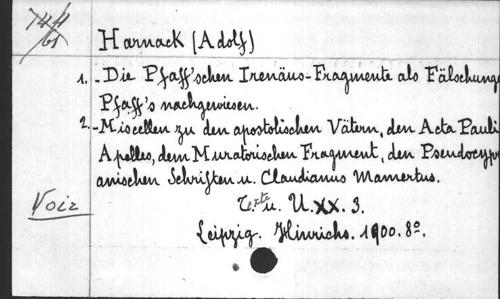 744/bs
Harnack (Adolf)
1. - Die Pfaff'schen Irenäus-Fragmente als Fälschunge
Pfaff's nachgewiesen.
2. - Miscellen zu den apostolischen Vätern, den Acta Pauli
Apelles, dem Muratorischen Fragment, den Pseudocypr
anischen Schriften u. Claudianus Mamertus.
Voir
Texte u. U. XX. 3.
Leipzig. Hinrichs. 1900. 8º.